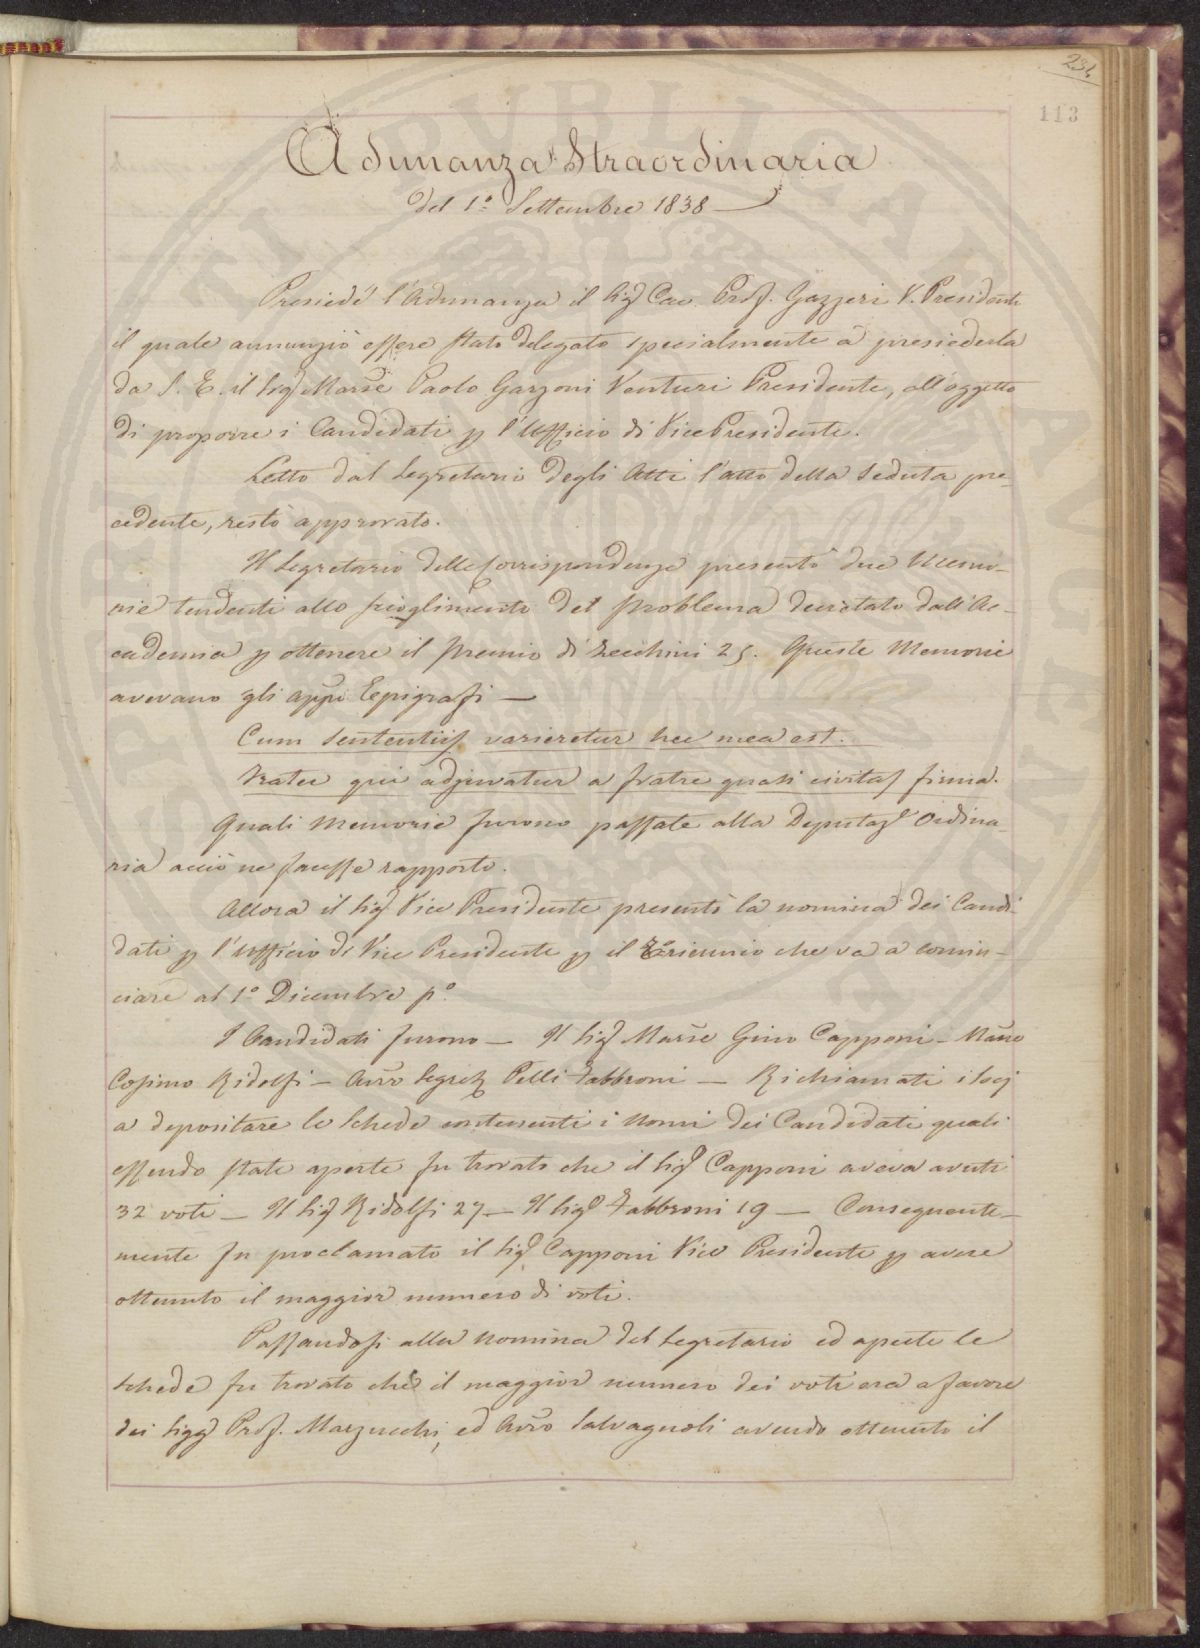 234
113
Adunanza Straordinaria
del 1.° Settembre 1838
Presiedé l'Adunanza il Sig Cav. Prof. Gazzeri V. Presidente
il quale annunziò essere stato delegato specialmente a presiederla
da S. E. il Sig Marse Paolo Garzoni Venturi Presidente, all'oggetto
di proporre i Candidati p l'Uffizio di Vice Presidente.
Letto dal Segretario degli Atti l'atto della Seduta pre-
cedente, restò approvato.
Il Segretario delle Corrispondenze presentò due Memo-
rie tendenti allo scioglimento del problema decretato dall'Ac-
cademia p ottenere il premio di Zecchini 25. Queste Memorie
avevano gli appi Epigrafi —
Cum Sententiis varieretur hec mea est.
Frater qui adjuvatur a fratre quasi civitas firma.
Quali Memorie furono passate alla Deputaze Ordina-
ria acciò ne facesse rapporto.
Allora il Sig Vice Presidente presentò la nomina dei Candi-
dati p l'Uffizio di Vice Presidente p il Triennio che va a comin-
ciare al 1° Dicembre p°.
I Candidati furono — Il Sig Marse Gino Capponi — Marse
Cosimo Ridolfi — Avvo Segreto Pelli Fabbroni — Richiamati i Socj
a depositare le Schede contenenti i Nomi dei Candidati quali
essendo state aperte fu trovato che il Sig Capponi aveva avuti
32 voti — Il Sig Ridolfi 27 — Il Sig Fabbroni 19 — Conseguente-
mente fu proclamato il Sig Capponi Vice Presidente p avere
ottenuto il maggior numero di voti.
Passandosi alla Nomina del Segretario ed aperte le
schede fu trovato che il maggior numero dei voti era a favore
dei Sigg Prof. Marzucchi, ed Avvo Salvagnoli avendo ottenuto il